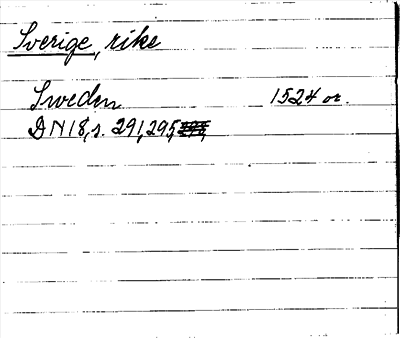 Sverige, rike
Sweden 1524 or.
DN 18, s. 291, 295,